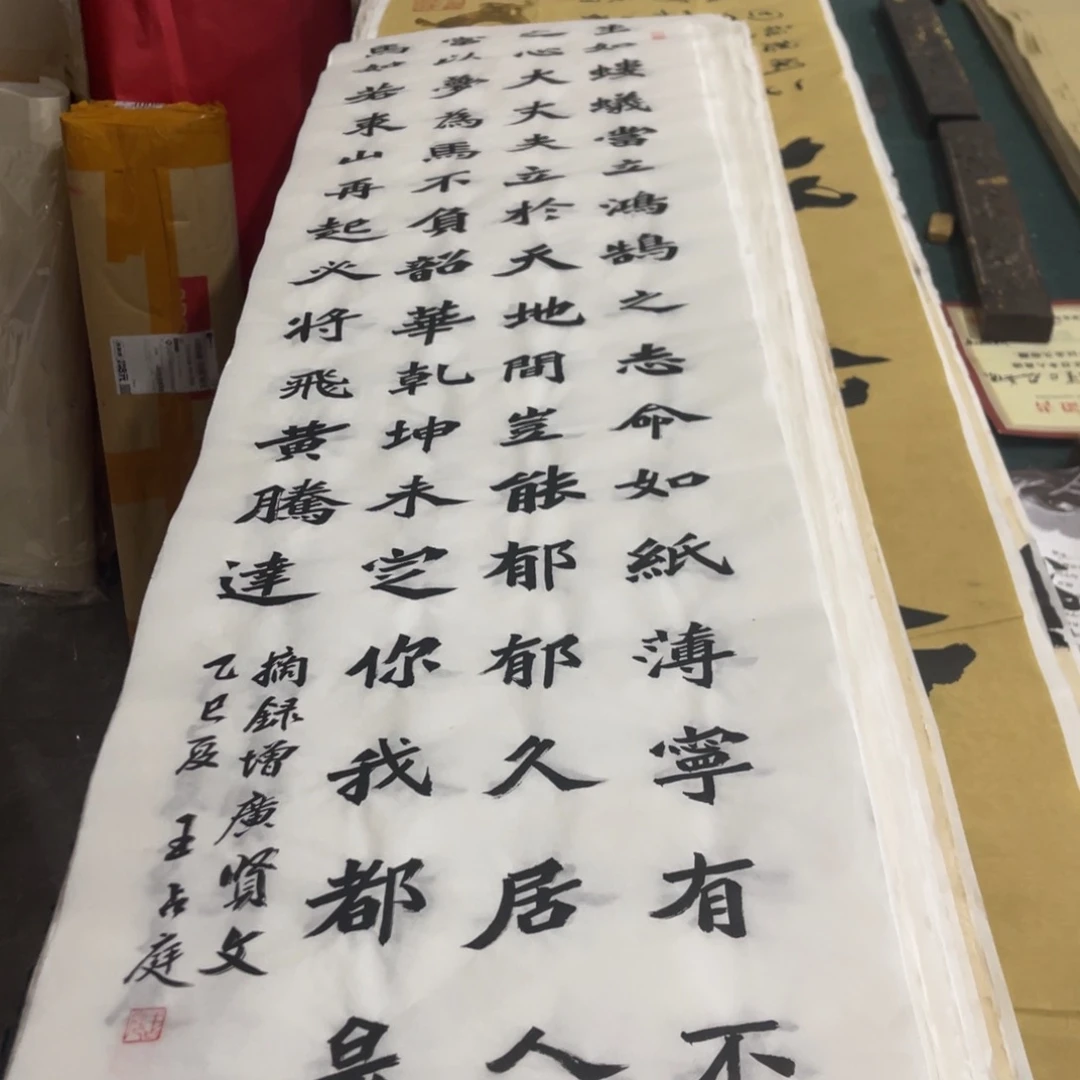 生如螻蟻當立鴻鵠之志命如紙薄寧有不
之心大丈夫立於天地間豈能郁郁久居人
當以夢為馬不負韶華乾坤未定你我都是
馬如若東山再起必将飛黄騰達
摘録增廣賢文
乙巳夏 王占庭